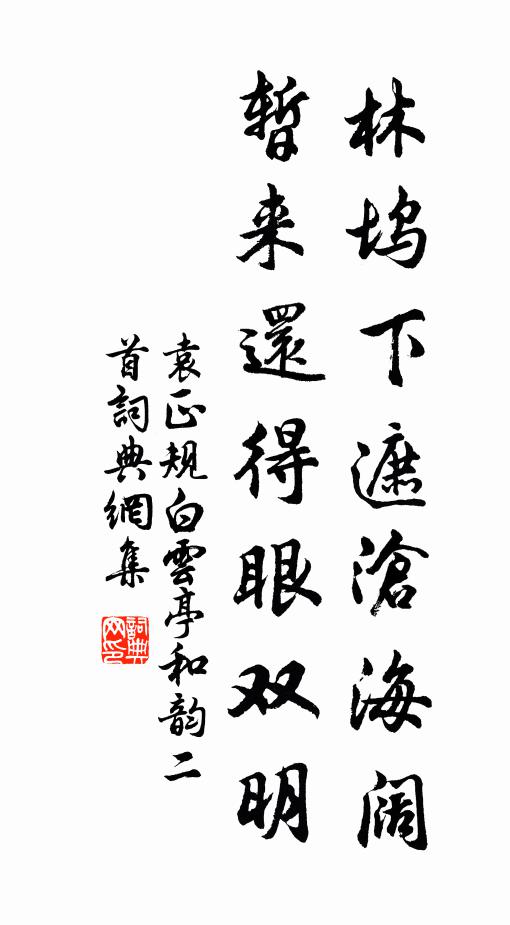 林坞下遮滄海阔
暫来還得眼双明
袁正规白雲亭和韵二
首詞典網集
詞典
网印